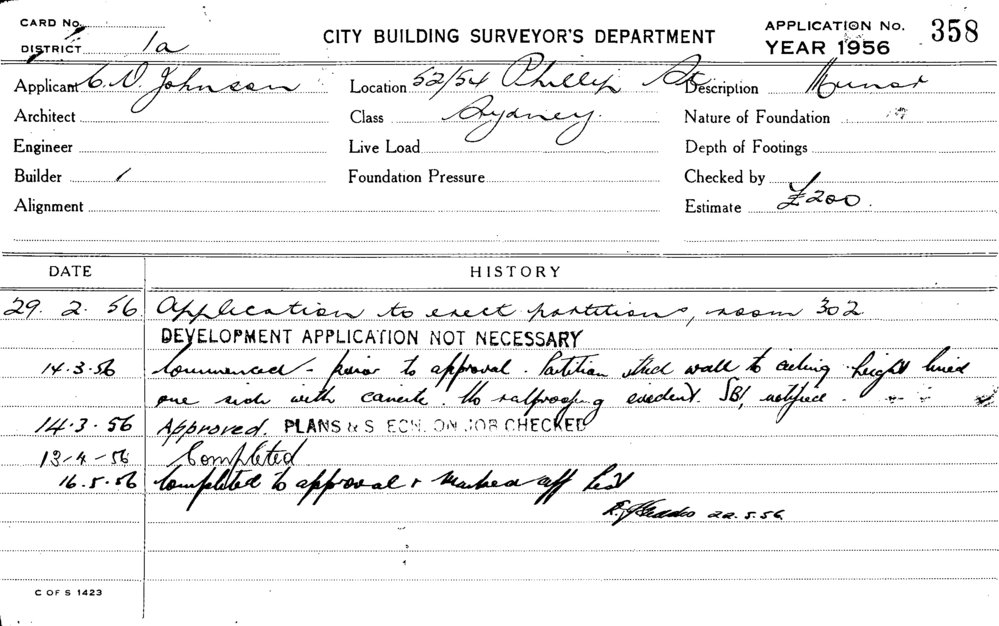 CARD No.
DISTRICT 1a
CITY BUILDING SURVEYOR'S DEPARTMENT
APPLICATION No. 358
YEAR 1956
Applicant C. D. Johnson
Location 52/54 Phillip St
Description
Architect
Class Sydney.
Nature of Foundation
Engineer
Live Load
Depth of Footings
Builder
Foundation Pressure
Checked by
Alignment
Estimate £200.
DATE
HISTORY
29. 2. 56 Application to erect partitions, room 302
DEVELOPMENT APPLICATION NOT NECESSARY
14.3.56 Commenced - prior to approval. Partition stud wall to ceiling height lined
one side with caneite. No ratproofing evident. SBI, notified.
14.3.56 Approved. PLANS & SPECN. ON JOB CHECKED
13-4-56 Completed
16.5.56 Completed to approval & marked off list
22.5.56
C OF S 1423